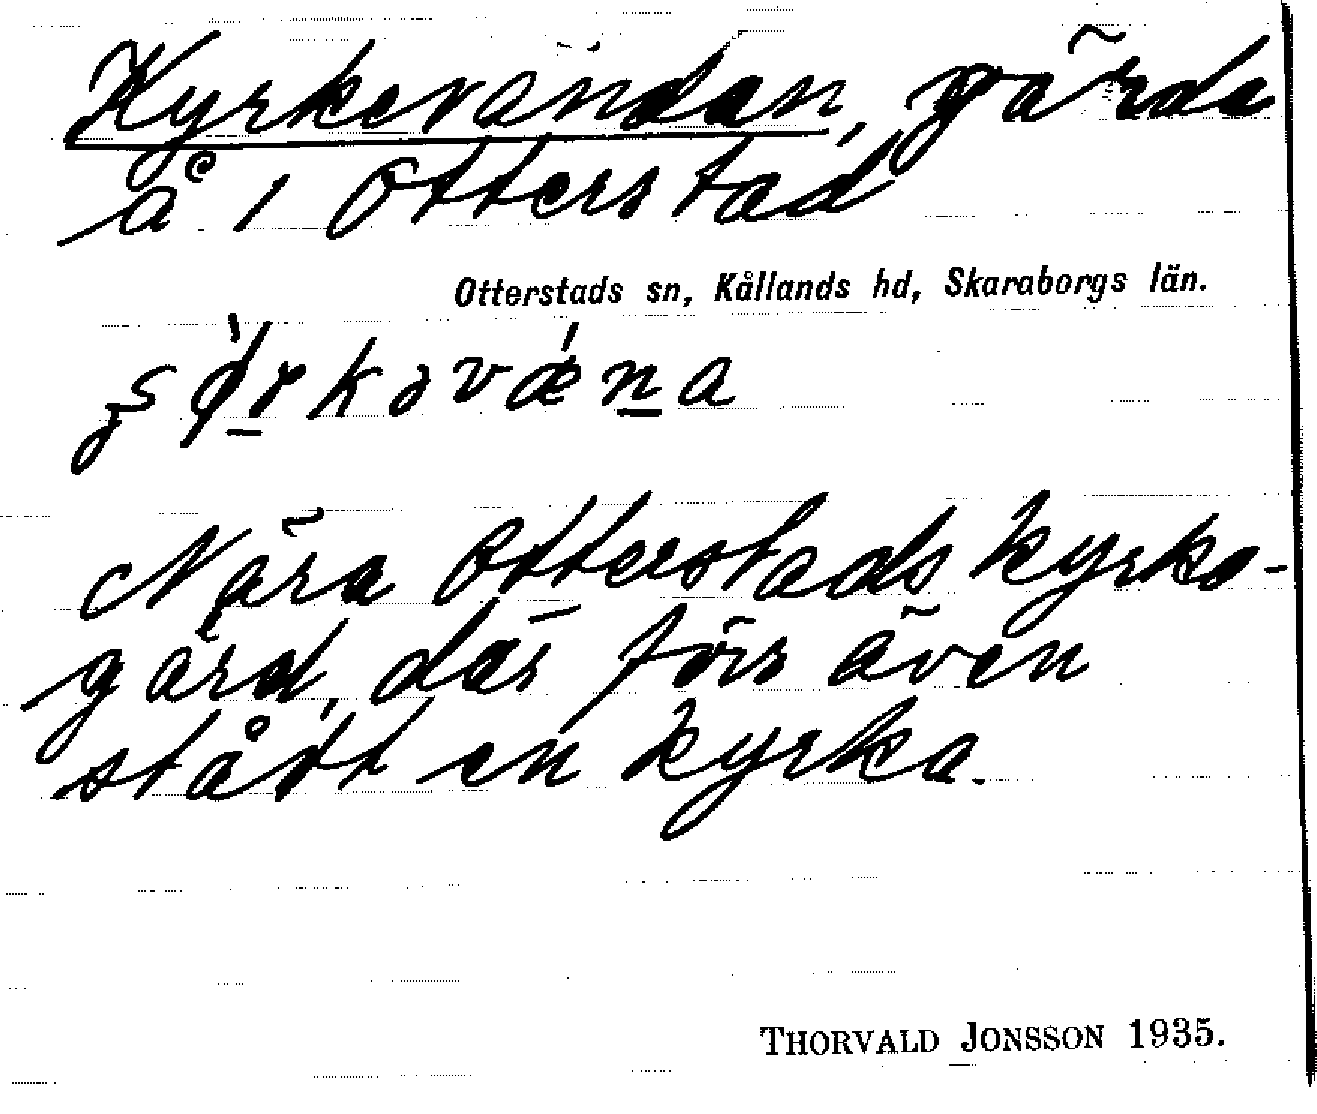 Kyrkevändan, gärde
å i Otterstad
Otterstads sn, Kållands hd, Skaraborgs län.
Nära Otterstads kyrko-
gård, där förr även
stått en kyrka.
THORVALD JONSSON 1935.